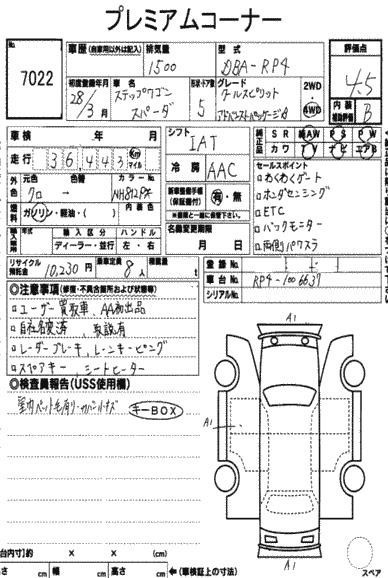 プレミアムコーナー
No.
7022
車歴 (自家用以外は記入)
排気量
1500
型式
DBA-RP4
評価点
4.5
初度登録年月
28/3月
車名
ステップワゴン
スパーダ
形状・ドア数
5
グレード
クールスピリット
アドバンストパッケージβ
2WD
4WD
内装
補助評価
B
車検 年 月
シフト
IAT
純正品
SR 純AW PS PW
カワ TV ナビ エアB
走行
36,443 km マイル
冷房
AAC
セールスポイント
わくわくゲート
ホンダセンシング
ETC
バックモニター
両側パワスラ
外色
元色 色替 カラーNo.
クロ → NH812PX
燃料
ガソリン・軽油・( )
内装色
新車整備手帳
(保証書付)
有・無
※車検と一緒に保管下さい。
名義変更期限
月 日
輸入車用
年式 輸入区分 ハンドル
ディーラー・並行 左・右
リサイクル預託金
10,230円
乗車定員
8人
積載量
t
登録No.
車台No.
RP4-1006637
シリアルNo.
◎注意事項 (修復・不具合箇所および状態等)
ユーザー買取車、AA初出品
自社名変済 取説有
レーダーブレーキ、レーンキーピング
スペアキー、シートヒーター
◎検査員報告 (USS使用欄)
キーBOX
A1
A1
A1
荷台内寸)約 × × (cm)
cm 幅 cm 高さ cm ←(車検証上の寸法)
スペア